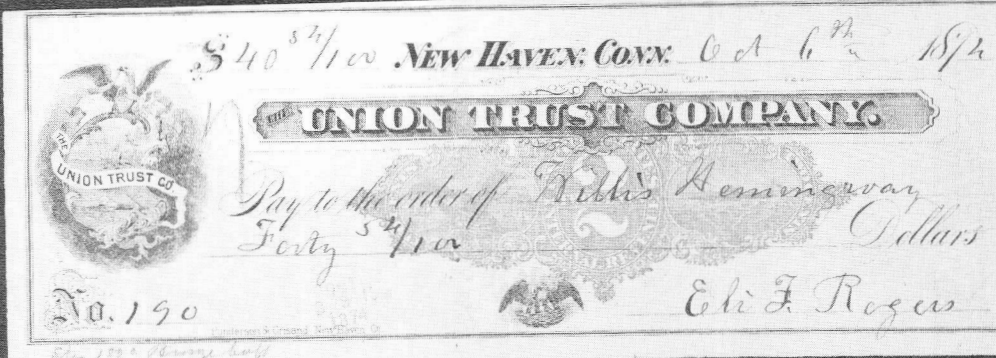 $40 54/100 NEW HAVEN, CONN. Oct 6th 1874
THE UNION TRUST COMPANY.
THE UNION TRUST CO.
Pay to the order of Willis Hemingway
Forty 54/100 Dollars
No. 190
Eli F. Rogers
New Haven, Ct.